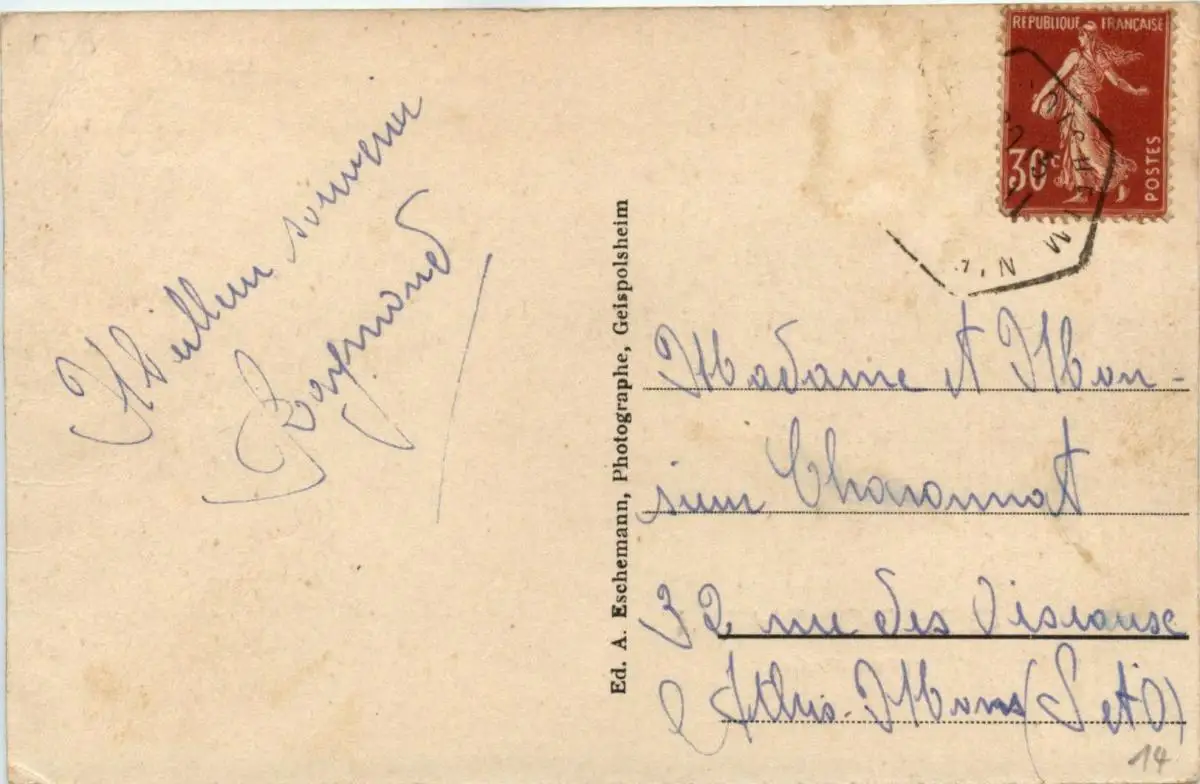 Meilleur souvenir
Raymond
Ed. A. Eschemann, Photographe, Geispolsheim
REPUBLIQUE FRANÇAISE
30c
POSTES
Madame et Mon-
sieur Charonnat
32 rue des Oiseaux
Athis-Mons (S et O)
14